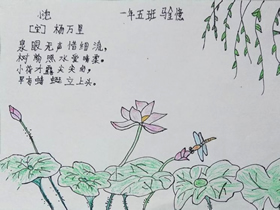 小池
一年五班
[宋] 杨万里
泉眼无声惜细流，
树荫照水爱晴柔。
小荷才露尖尖角，
早有蜻蜓立上头。